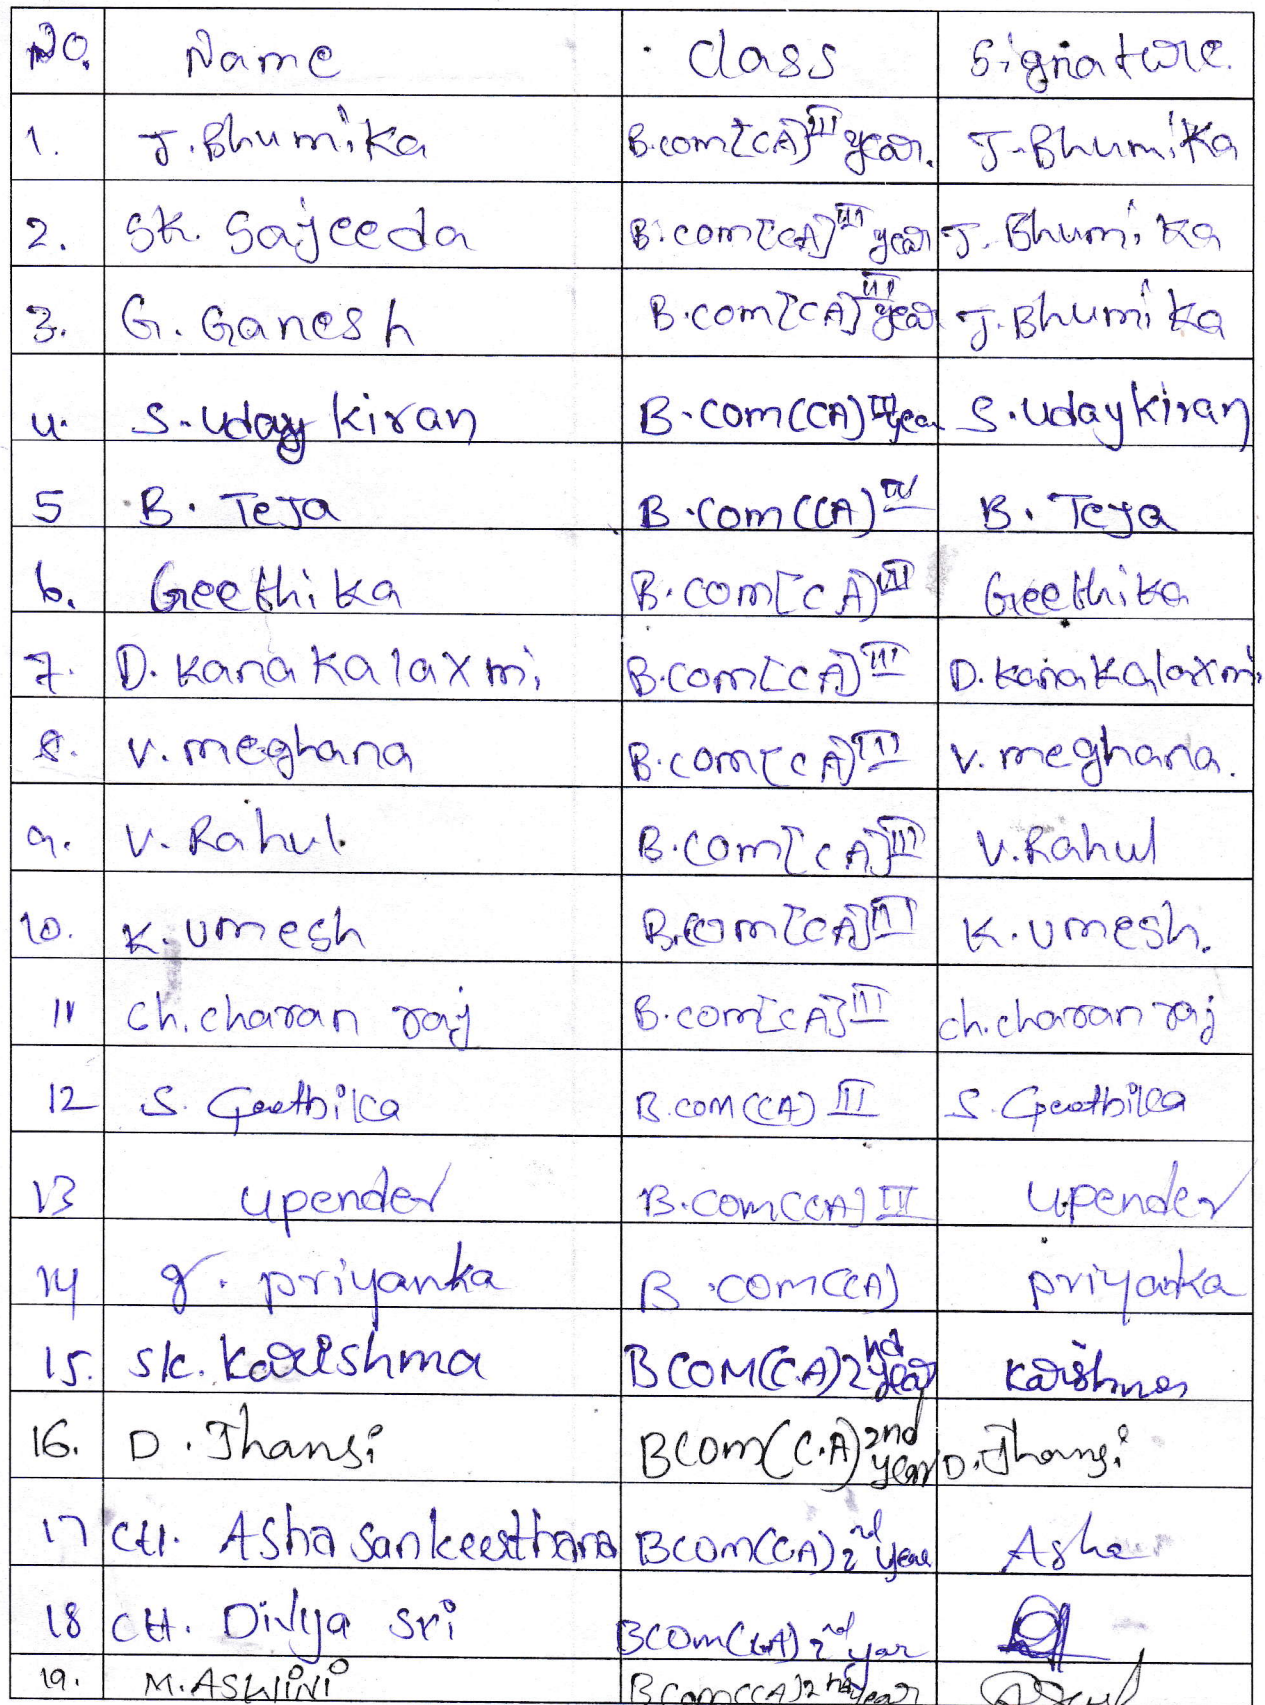 NO. Name Class Signature.
1. J. Bhumika B.com[CA] III year. J. Bhumika
2. SK. Sajeeda B.com[CA] III year J. Bhumika
3. G. Ganesh B.com[CA] III year J. Bhumika
4. S. Uday kiran B.com(CA) III year S. Uday kiran
5 B. Teja B.com(CA) B. Teja
6. Geethika B.com[CA] III Geethika
7. D. kanakalaxmi D. kanakalaxmi B.com[CA] III
8. V. meghana B.com[CA] III V. meghana.
9. V. Rahul. B.com[CA] III V. Rahul
10. K. Umesh B.com[CA] III K. Umesh.
11 ch. charan raj B.com[CA] III ch. charan raj
12 S. Geethika B.com(CA) III S. Geethika
13 upender B.com(CA) III upender
14 priyanka B.com(CA) priyanka
15. SK. Karishma BCOM(C.A) 2nd year Karishma
16. D. Jhansi BCOM(C.A) 2nd year D. Jhansi
17 CH. Asha sankeerthana BCOM(CA) 2nd year Asha
18 CH. Divya sri BCOM(CA) 2nd year
19. M. ASWINI Bcom(CA) 2nd year